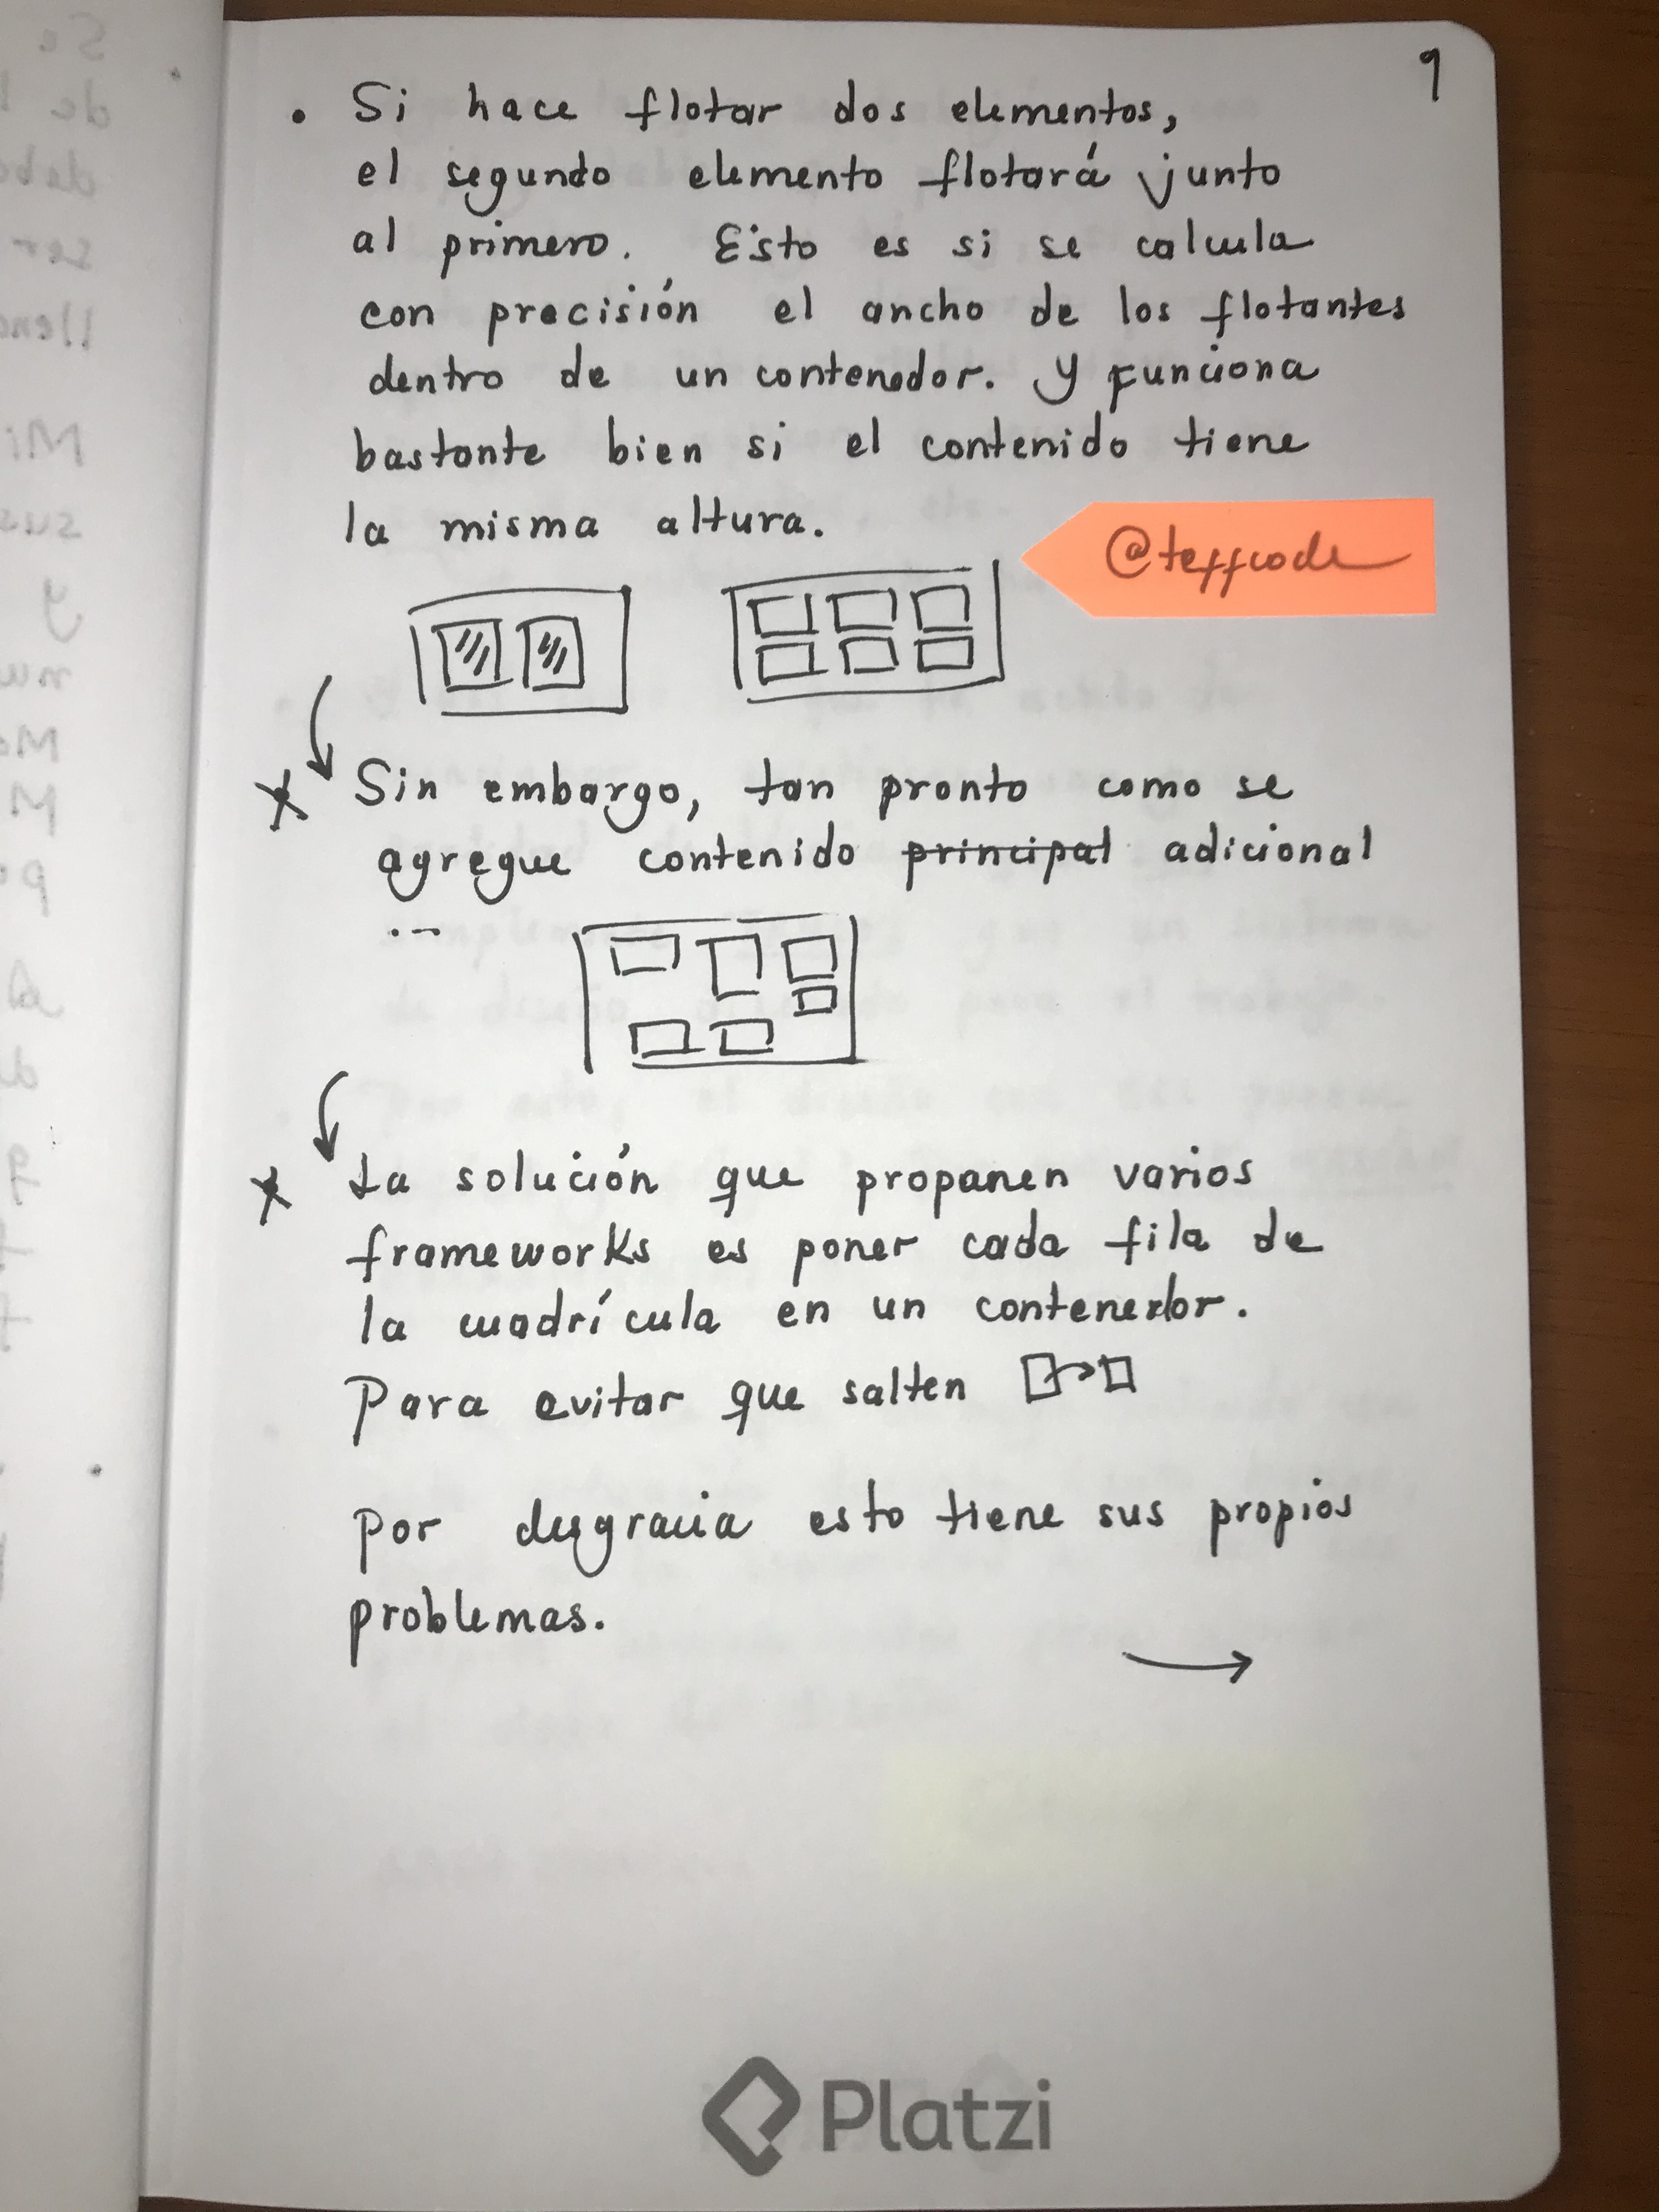 9
• Si hace flotar dos elementos,
el segundo elemento flotará junto
al primero. Esto es si se calcula
con precisión el ancho de los flotantes
dentro de un contenedor. Y funciona
bastante bien si el contenido tiene
la misma altura.
@teffcode
Sin embargo, tan pronto como se
agregue contenido principal adicional
...
La solución que propanen varios
frameworks es poner cada fila de
la cuadrícula en un contenedor.
Para evitar que salten
Por desgracia esto tiene sus propios
problemas.
Platzi